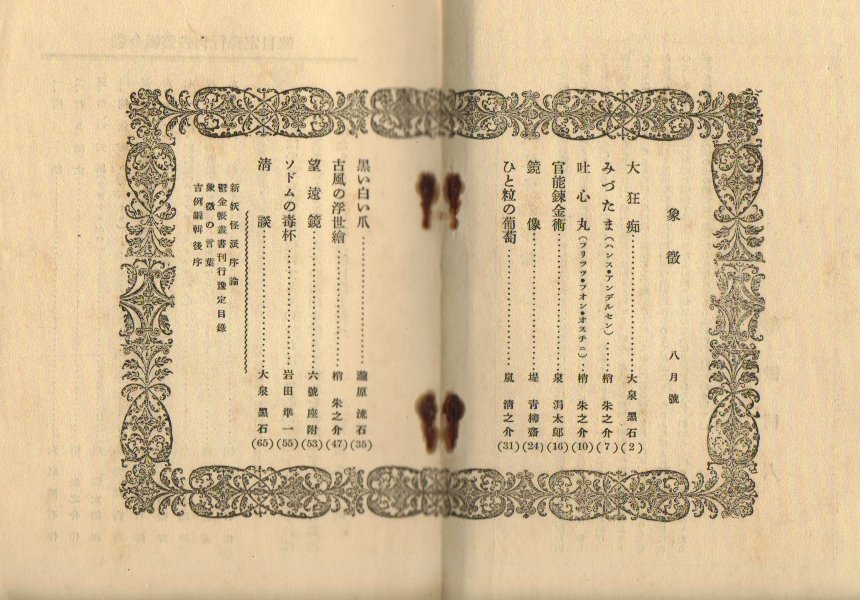 象徴
八月號
大狂痴……………………大泉 黑石(2)
みづたま(ハンス・アンデルセン)……梢 朱之介(7)
吐心丸(フリツツ・フオン・オスチニ)…梢 朱之介(10)
官能鍊金術……………………泉 潟太郎(16)
鏡像……………………堤 青柳齋(24)
ひと粒の葡萄……………………嵐 淸之介(31)
黑い白い爪……………………瀧原 流石(35)
古風の浮世繪……………………梢 朱之介(47)
望遠鏡……………………六號座附(53)
ソドムの毒杯……………………岩田 準一(55)
淸談……………………大泉 黑石(65)
新妖怪派序論
鬱金帳叢書刊行豫定目錄
象徴の言葉
吉例編輯後序